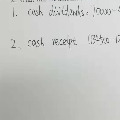 1. cash dividends: 10000-
2. cash receipt